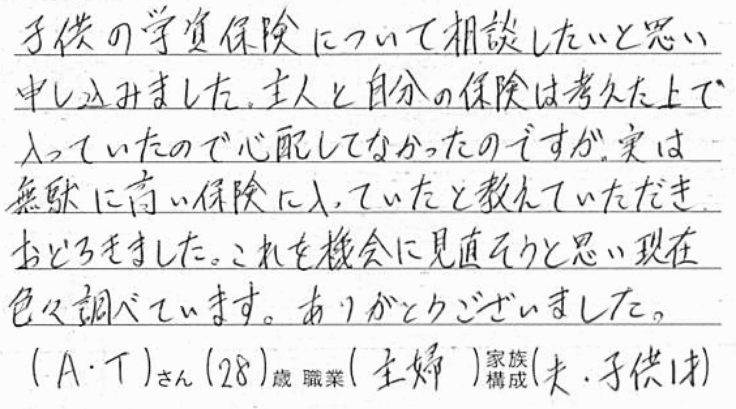 子供の学資保険について相談したいと思い
申し込みました。主人と自分の保険は考えた上で
入っていたので心配してなかったのですが、実は
無駄に高い保険に入っていたと教えていただき
おどろきました。これを機会に見直そうと思い現在
色々調べています。ありがとうございました。
(A・T)さん(28)歳 職業(主婦)家族構成(夫・子供1才)